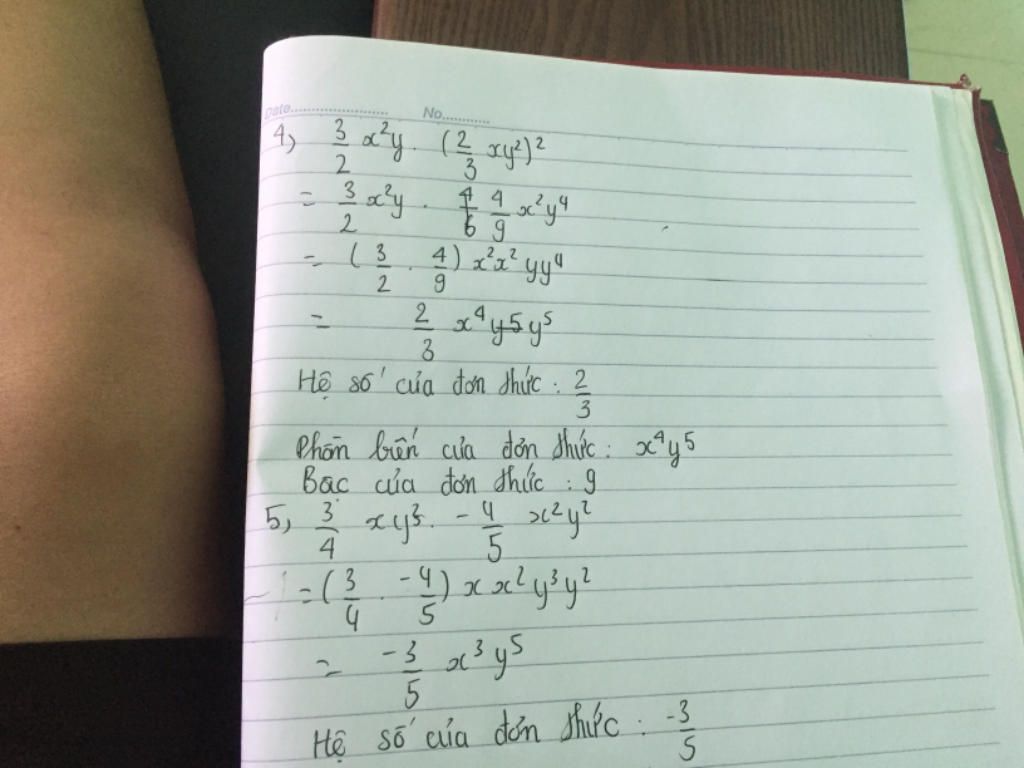 Date.................... No...........
4) 3/2 x²y . (2/3 xy²)²
= 3/2 x²y . 4/6 4/9 x²y⁴
= (3/2 . 4/9) x²x² yy⁴
= 2/3 x⁴y5y⁵
Hệ số của đơn thức : 2/3
Phần biến của đơn thức : x⁴y⁵
Bậc của đơn thức : 9
5, 3/4 xy³ . -4/5 x²y²
= (3/4 . -4/5) x x² y³y²
= -3/5 x³y⁵
Hệ số của đơn thức : -3/5